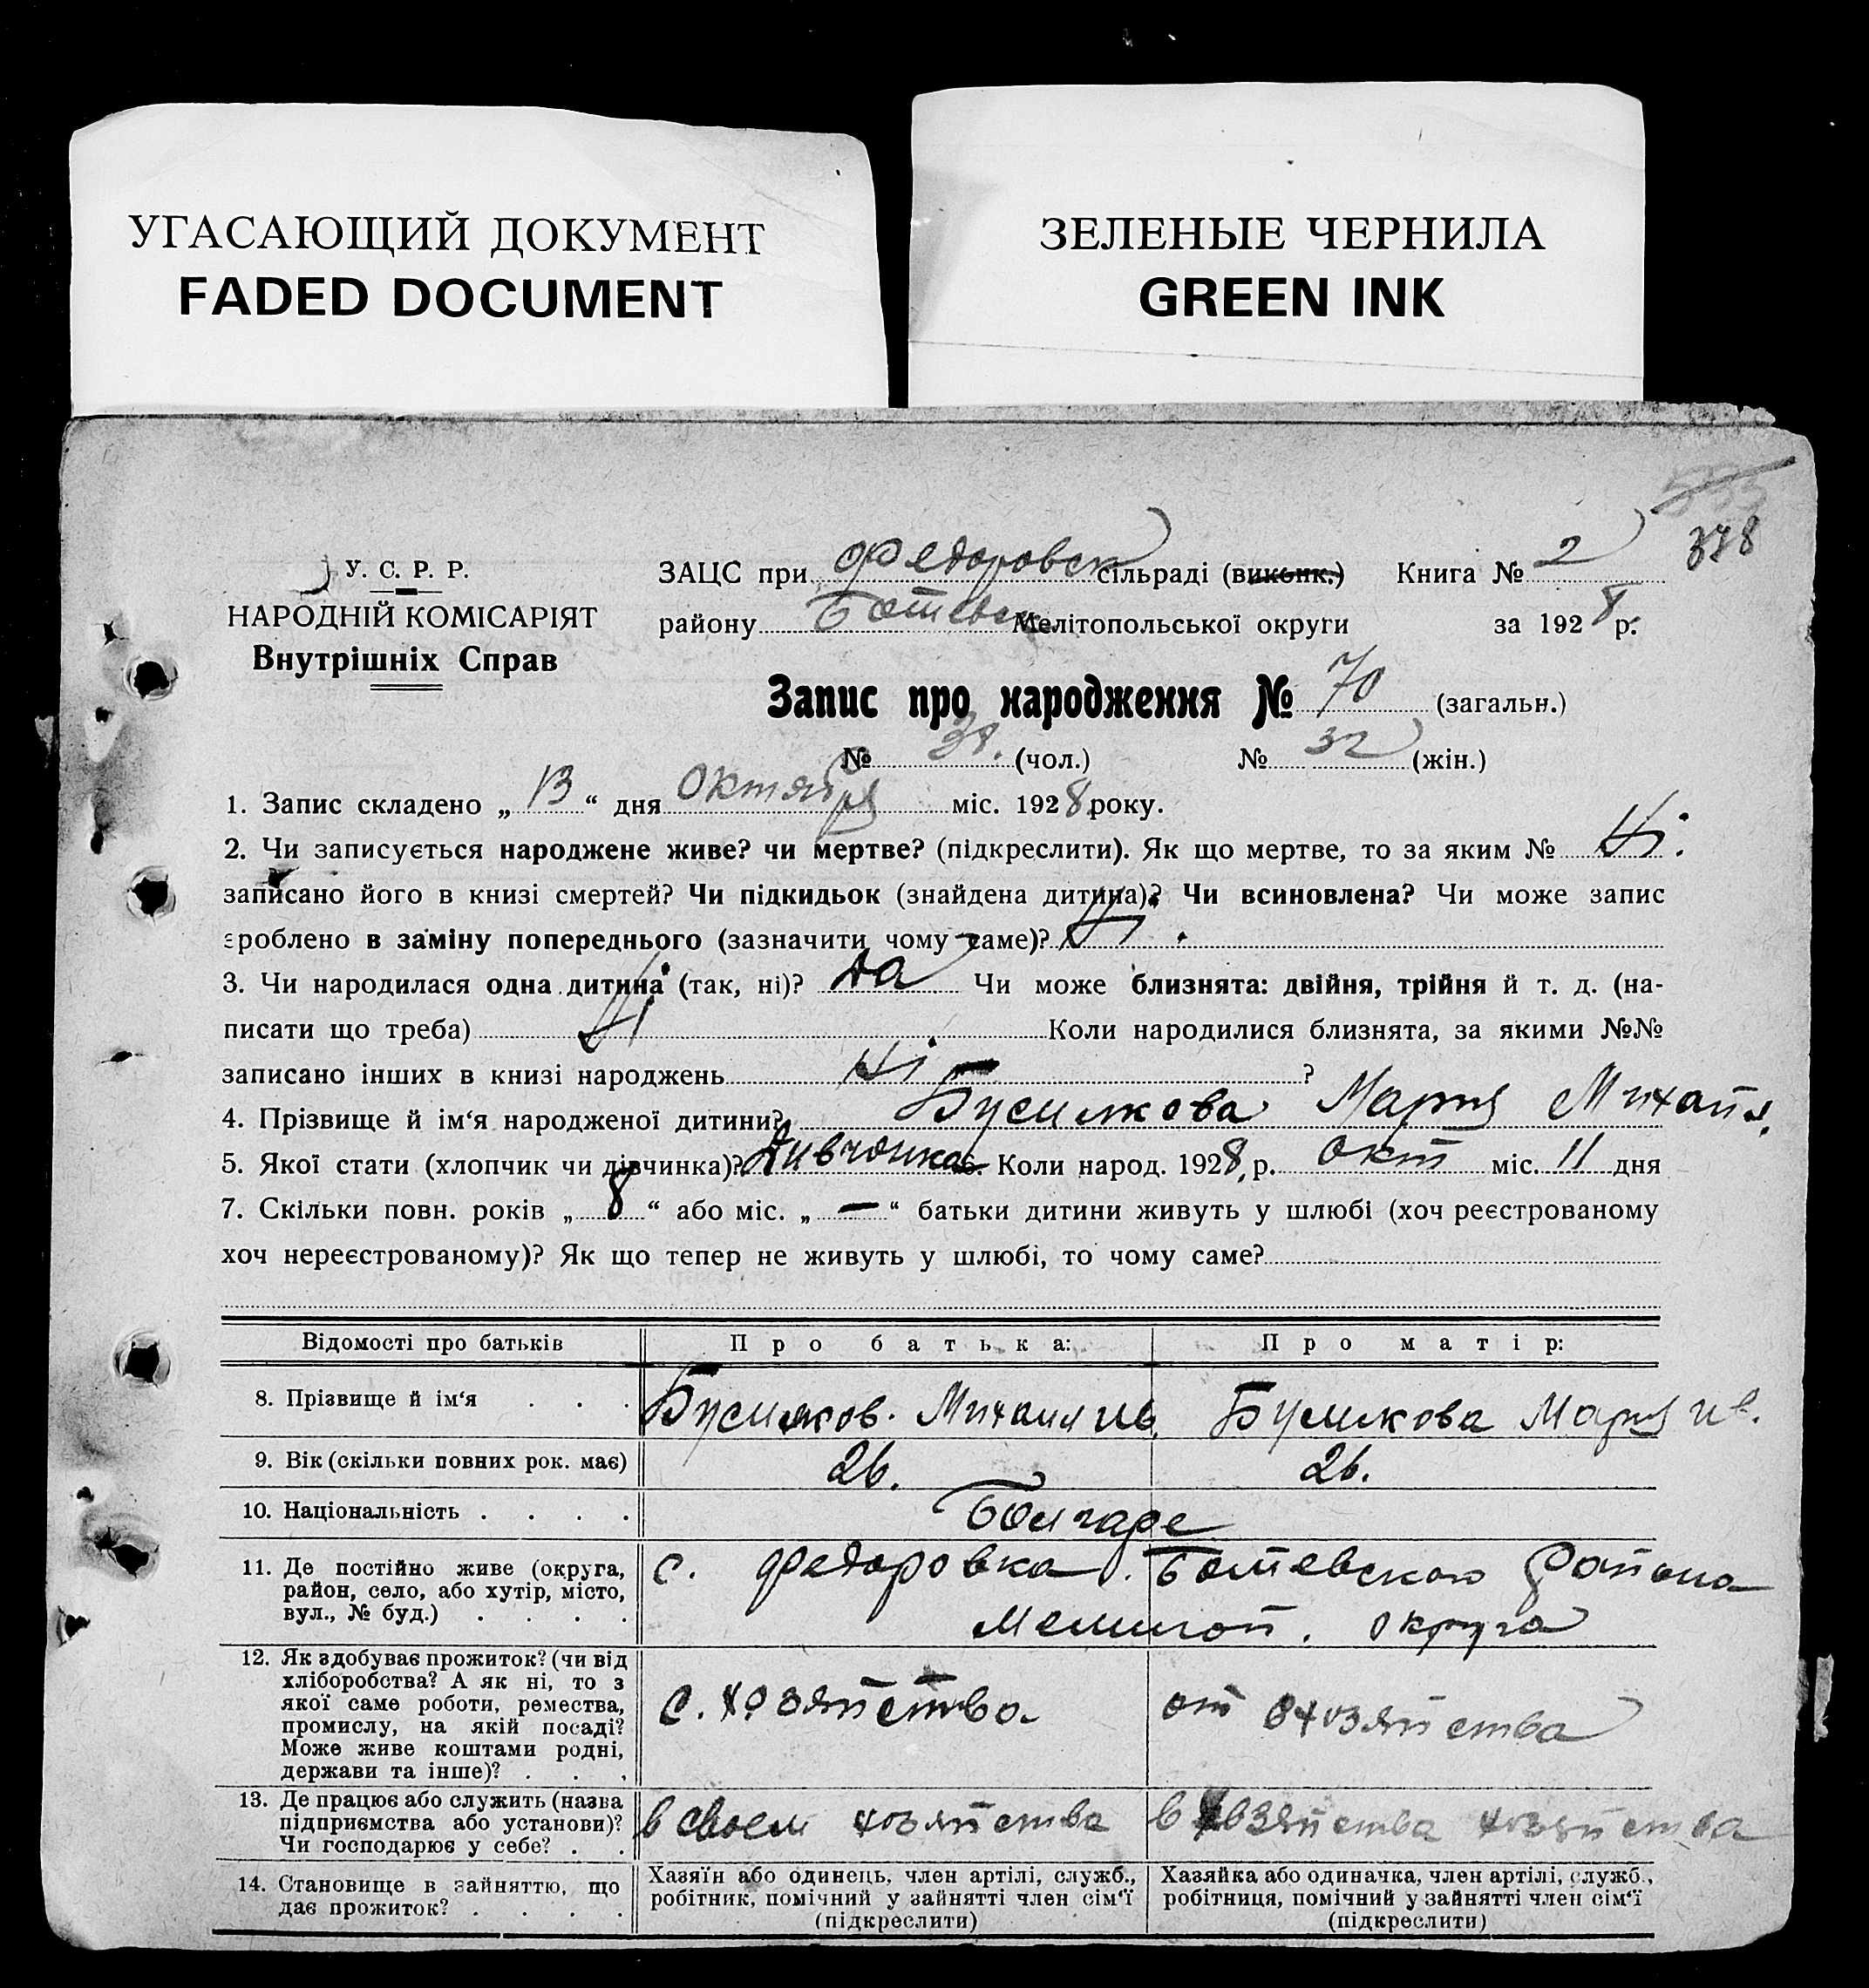 УГАСАЮЩИЙ ДОКУМЕНТ
FADED DOCUMENT
ЗЕЛЕНЫЕ ЧЕРНИЛА
GREEN INK
378
У. С. Р. Р.
НАРОДНІЙ КОМІСАРІЯТ
Внутрішніх Справ
ЗАЦС при Федоровск сільраді (виконк.) Книга № 2
району Ботевск Мелітопольської округи за 1928 р.
Запис про народження № 70 (загальн.)
№ 38. (чол.) № 32 (жін.)
1. Запис складено „ 13 “ дня Октября міс. 1928 року.
2. Чи записується народжене живе? чи мертве? (підкреслити). Як що мертве, то за яким № Ні.
записано його в книзі смертей? Чи підкидьок (знайдена дитина)? Чи всиновлена? Чи може запис
зроблено в заміну попереднього (зазначити чому саме)? Ні.
3. Чи народилася одна дитина (так, ні)? да Чи може близнята: двійня, трійня й т. д. (на-
писати що треба) Ні Коли народилися близнята, за якими №№
записано інших в книзі народжень Ні ?
4. Прізвище й ім‘я народженої дитини? Бусилкова Мария Михайл.
5. Якої стати (хлопчик чи дівчинка)? Дивчинка 6. Коли народ. 1928 р. окт міс. 11 дня
7. Скільки повн. років „ 8 “ або міс. „ — “ батьки дитини живуть у шлюбі (хоч реєстрованому
хоч нереєстрованому)? Як що тепер не живуть у шлюбі, то чому саме?
Відомості про батьків Про батька: Про матір:
8. Прізвище й ім‘я Бусилков. Михаил ив. Бусилкова Мария ив.
9. Вік (скільки повних рок. має) 26. 26.
10. Національність Болгаре
11. Де постійно живе (округа,
район, село, або хутір, місто,
вул., № буд.)
с. Федоровка. Ботевского района
Мелитоп. округа
12. Як здобуває прожиток? (чи від
хліборобства? А як ні, то з
якої саме роботи, ремества,
промислу, на якій посаді?
Може живе коштами родні,
держави та інше)?
с. хозяйства от хозяйства
13. Де працює або служить (назва
підприємства або установи)?
Чи господарює у себе?
в своем хозяйства в хозяйства
14. Становище в зайняттю, що
дає прожиток?
Хазяїн або одинець, член артілі, служб.,
робітник, помічний у зайнятті член сім‘ї
(підкреслити)
Хазяйка або одиначка, член артілі, служб.,
робітниця, помічний у зайнятті член сім‘ї
(підкреслити)